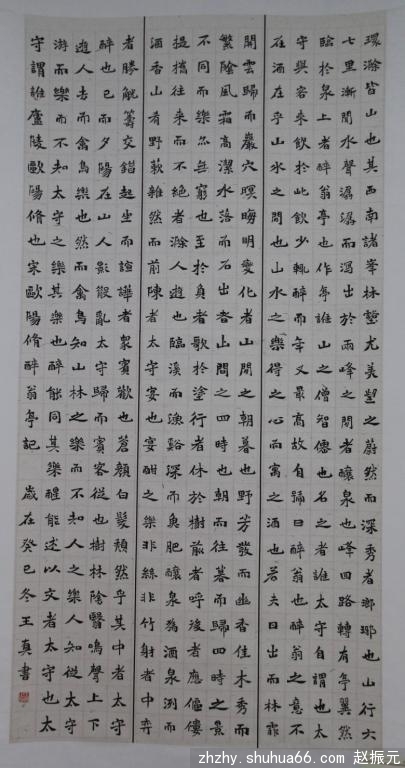 環滁皆山也其西南諸峯林壑尤美望之蔚然而深秀者瑯琊也山行六
七里漸聞水聲潺潺而瀉出於兩峰之間者釀泉也峰回路轉有亭翼然
臨於泉上者醉翁亭也作亭誰山之僧智儒也名之者誰太守自謂也太
守與客來飲於此飲少輒醉而年又最高故自號曰醉翁也醉翁之意不
在酒在乎山水之間也山水之樂得之心而寓之酒也若夫日出而林霏
開雲歸而巖穴暝晦明變化者山間之朝暮也野芳發而幽香佳木秀而
繁陰風霜高潔水落而石出者山間之四時也朝而往暮而歸四時之景
不同而樂亦無窮也至於負者歌於塗行者休於樹前者呼後者應傴僂
提攜往來而不絕者滁人遊也臨溪而漁谿深而魚肥釀泉為酒泉洌而
酒香山肴野蔌雜然而前陳者太守宴也宴酣之樂非絲非竹射者中弈
者勝觥籌交錯起坐而諠譁者眾賓歡也蒼顏白髮頹然乎其中者太守
醉也已而夕陽在山人影散亂太守歸而賓客從也樹林陰翳鳴聲上下
遊人去而禽鳥樂也然而禽鳥知山林之樂而不知人之樂人知從太守
游而樂而不知太守之樂其樂也醉能同其樂醒能述以文者太守也太
守謂誰廬陵歐陽脩也宋歐陽脩醉翁亭記 歲在癸巳冬王真書
zhzhy.shuhua66.com 赵振元